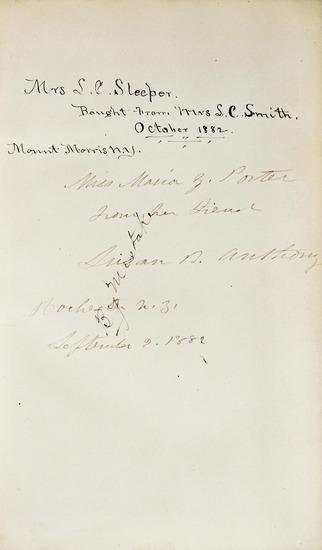 Mrs L. C. Sleeper.
Bought From Mrs L. C. Smith.
October 1882.
Mount Morris N.Y.
Miss Maria G. Porter
from her friend
Susan B. Anthony
By Mistake
Rochester N.Y.
September 2. 1882